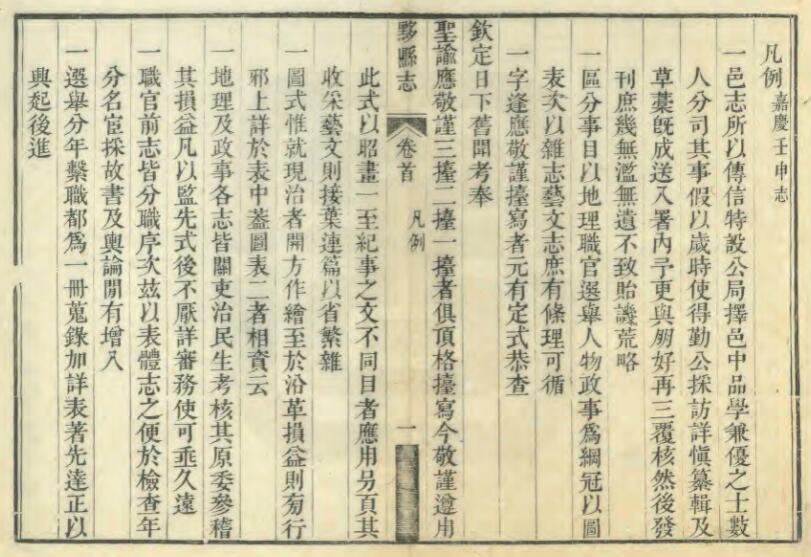 凡例 嘉慶壬申志
一邑志所以傳信特設公局擇邑中品學兼優之士數
人分司其事假以歲時使得勤公採訪詳愼纂輯及
草藁旣成送入署內予更與朋好再三覆核然後發
刊庶幾無濫無遺不致貽譏荒略
一區分事目以地理職官選舉人物政事爲綱冠以圖
表次以雜志藝文志庶有條理可循
一字逢應敬謹擡寫者元有定式恭查
欽定日下舊聞考奉
聖諭應敬謹三擡二擡一擡者俱頂格擡寫今敬謹遵用
黟縣志 卷首 凡例 一
此式以昭畫一至紀事之文不同目者應用另頁其
收采藝文則接葉連篇以省繁雜
一圖式惟就現治者開方作繪至於沿革損益則菊行
邪上詳於表中葢圖表二者相資云
一地理及政事各志皆關吏治民生考核其原委參稽
其損益凡以監先式後不厭詳審務使可垂久遠
一職官前志皆分職序次兹以表體志之便於檢查年
分名宦採故書及輿論閒有增入
一選舉分年繫職都爲一冊蒐錄加詳表著先達正以
興起後進